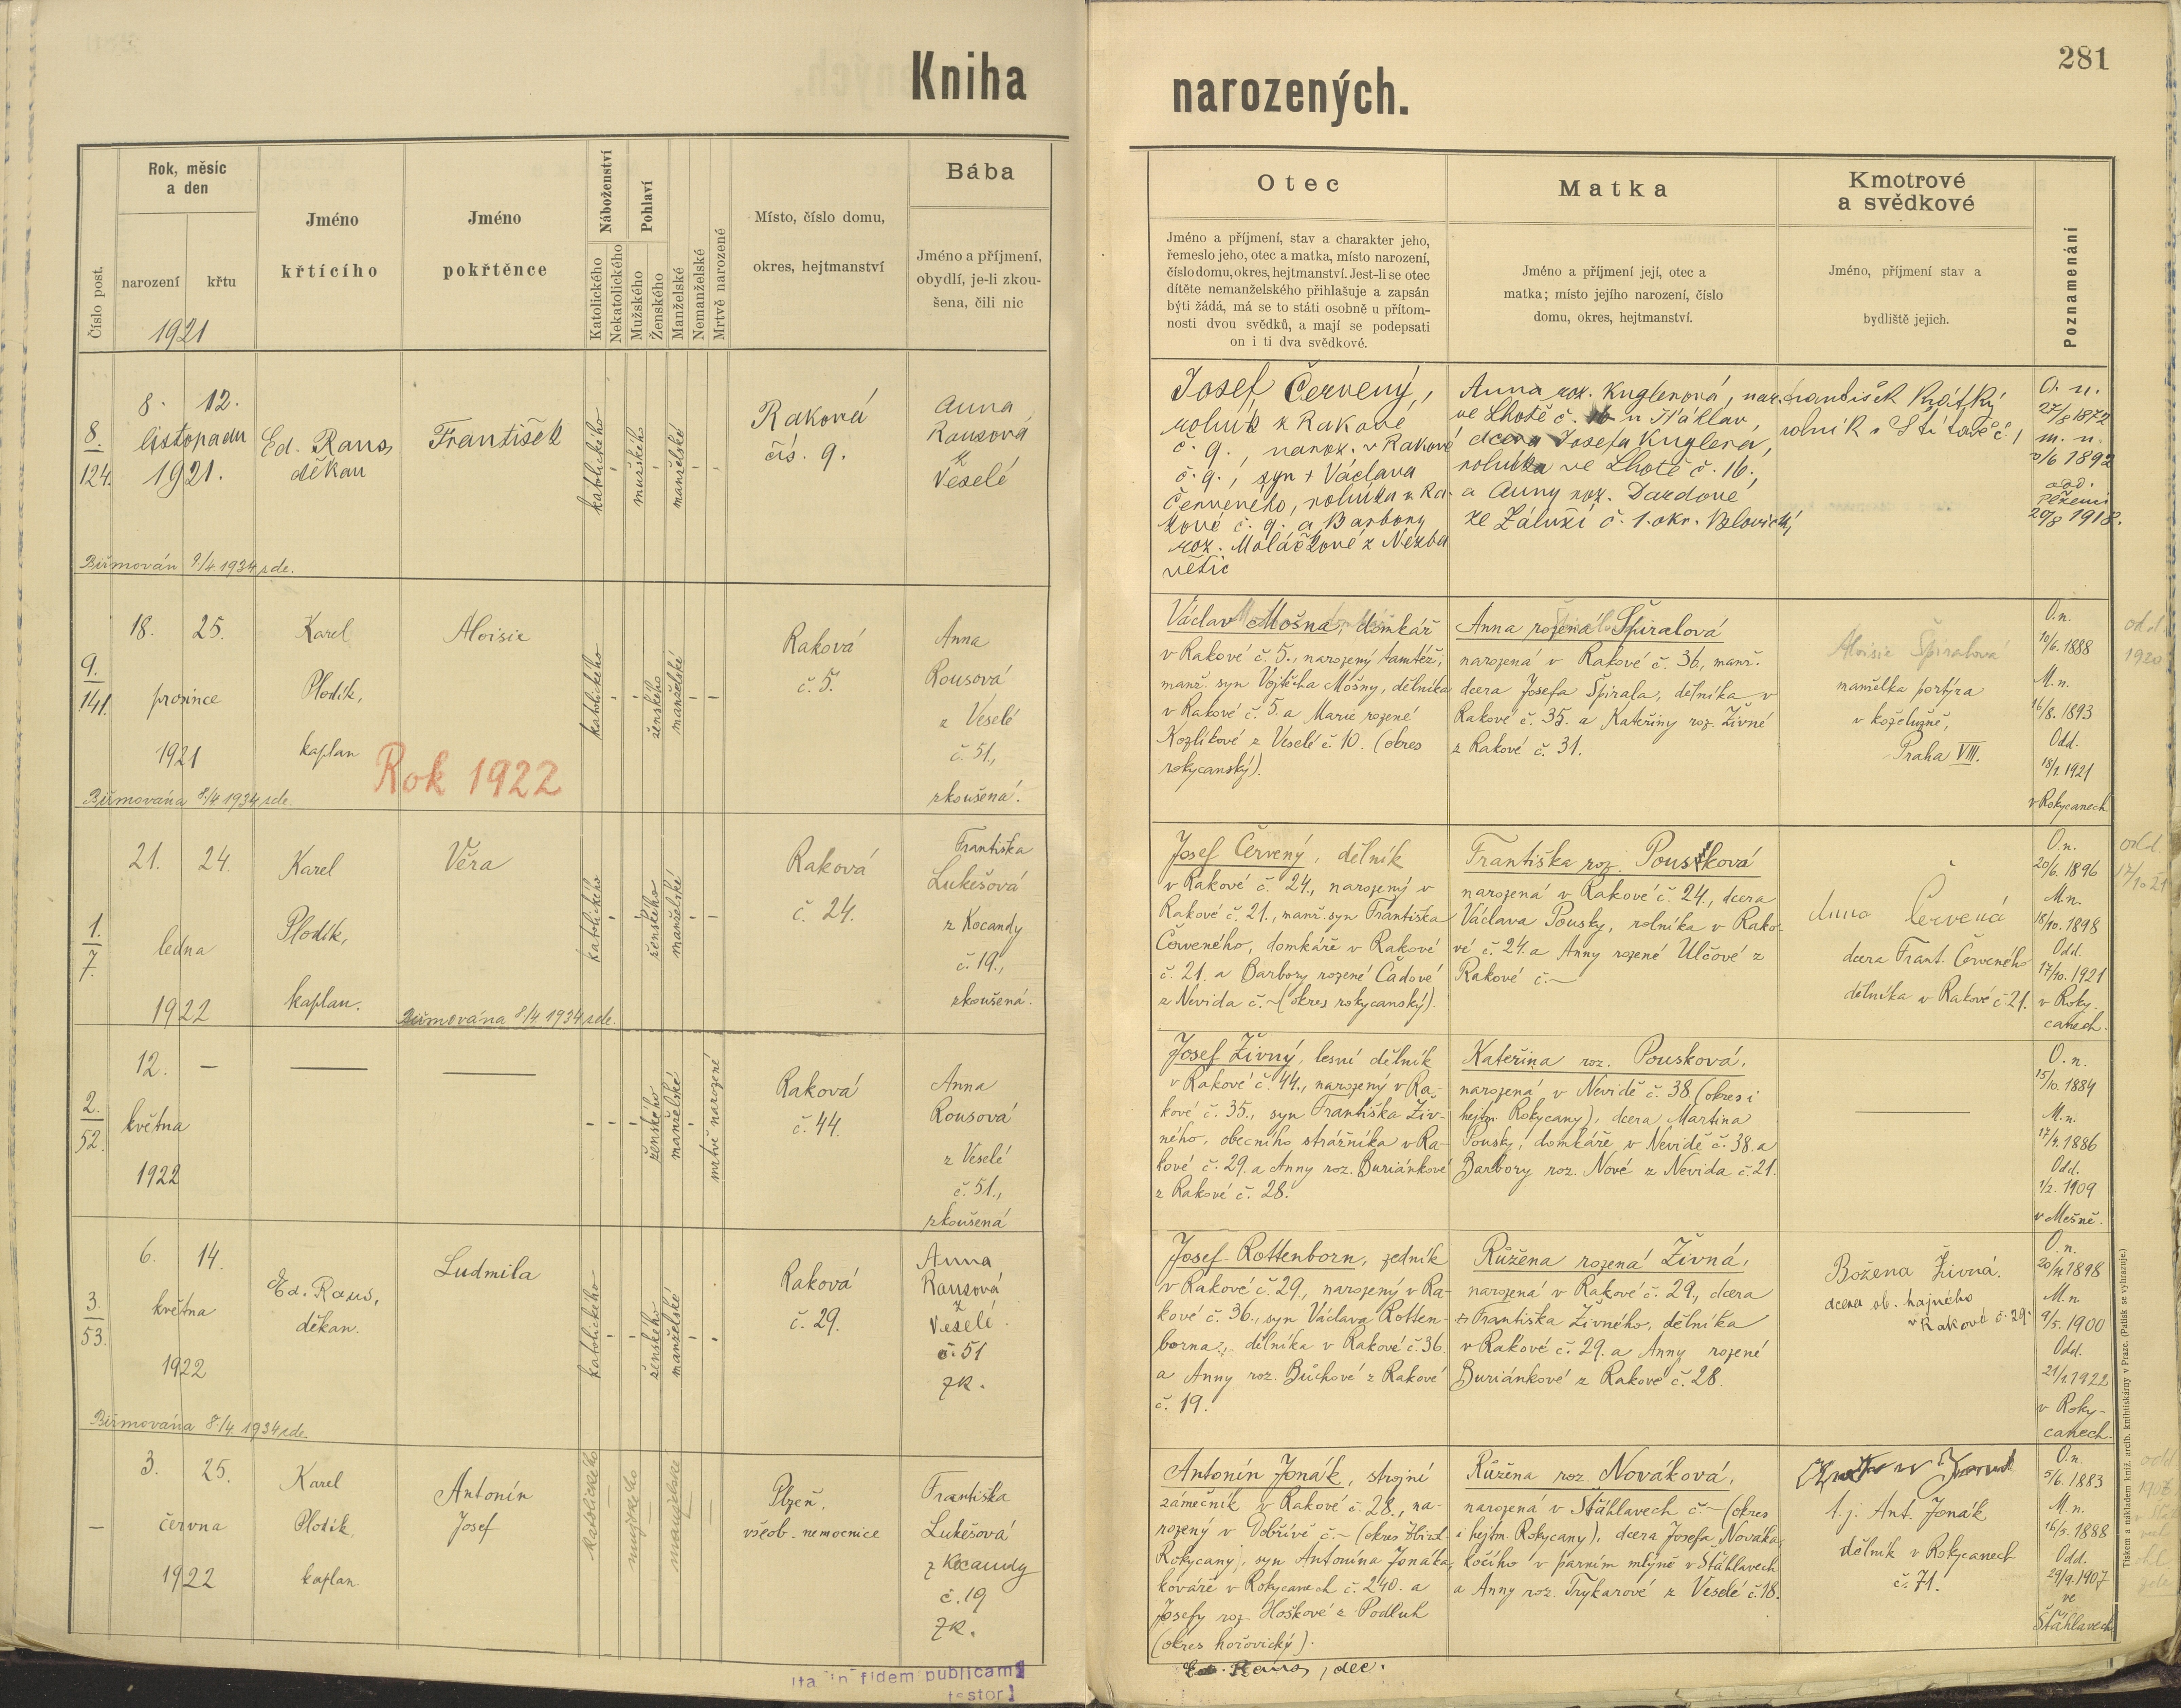 281
Kniha narozených.
Číslo post.
Rok, měsíc
a den
narození
křtu
1921
Jméno
křtícího
Jméno
pokřtěnce
Náboženství
Katolického
Nekatolického
Pohlaví
Mužského
Ženského
Manželské
Nemanželské
Mrtvě narozené
Místo, číslo domu,
okres, hejtmanství
Bába
Jméno a příjmení,
obydlí, je-li zkou-
šena, čili nic
Otec
Jméno a příjmení, stav a charakter jeho,
řemeslo jeho, otec a matka, místo narození,
číslo domu, okres, hejtmanství. Jest-li se otec
dítěte nemanželského přihlašuje a zapsán
býti žádá, má se to státi osobně u přítom-
nosti dvou svědků, a mají se podepsati
on i ti dva svědkové.
Matka
Jméno a příjmení její, otec a
matka; místo jejího narození, číslo
domu, okres, hejtmanství.
Kmotrové
a svědkové
Jméno, příjmení stav a
bydliště jejich.
Poznamenání
8.
124.
8. 12.
listopadu
1921.
Ed. Raus,
děkan
František
katolického
mužského
manželské
Raková
čís. 9.
Anna
Rausová
z
Veselé
Biřmován 8/4 1934 zde.
Josef Červený,
rolník z Rakové
č. 9., naroz. v Rakové
č. 9., syn + Václava
Červeného, rolníka v Ra-
kové č. 9. a Barbory
roz. Moláčkové z Nezba
větic
Anna roz. Kuglerová, nar.
ve Lhotě č. u Šťáhlav,
dcera Josefa Kuglera,
rolníka ve Lhotě č. 16.,
a Anny roz. Dardové
ze Záluží č. 1. okr. Blovický
František Krátký
rolník
O. n.
27/8 1872
m. n.
1892
odd.
Plzeni
20/8 1918.
9.
141.
18. 25.
prosince
1921
Karel
Plodík,
kaplan
Aloisie
katolického
ženského
manželské
Raková
č. 5.
Anna
Rousová
z Veselé
č. 51.,
zkoušená.
Biřmována 8/4 1934 zde.
Václav Mošna, domkář
v Rakové č. 5., narozený tamtéž;
manž. syn Vojtěcha Mošny, dělníka
v Rakové č. 5. a Marie rozené
Kozlíkové z Veselé č. 10. (okres
rokycanský).
Anna rozená Špiralová
narozená v Rakové č. 36, manž.
dcera Josefa Špirala, dělníka v
Rakové č. 35. a Kateřiny roz. Živné
z Rakové č. 31.
Aloisie Špiralová
manželka portýra
v koželužně,
Praha VIII.
O.n.
10/6. 1888
M.n.
16/8. 1893
Odd.
18/1 1921
v Rokycanech
odd
1920
Rok 1922
1.
7.
21. 24.
ledna
1922
Karel
Plodík,
kaplan.
Věra
katolického
ženského
manželské
Raková
č. 24.
Františka
Lukešová
z Kocandy
č. 19.,
zkoušená.
Biřmována 8/4 1934 zde.
Josef Červený, dělník
v Rakové č. 24., narozený v
Rakové č. 21., manž. syn Františka
Červeného, domkáře v Rakové
č. 21. a Barbory rozené Čadové
z Nevida č. ~ (okres rokycanský).
Františka roz. Pousková
narozená v Rakové č. 24., dcera
Václava Pousky, rolníka v Rako-
vé č. 24. a Anny rozené Ulčové z
Rakové č. ~
Anna Červená
dcera Frant. Červeného
dělníka v Rakové č. 21.
O.n.
20/6. 1896
M.n.
18/10. 1898
Odd.
17/10. 1921
v Roky-
canech.
odd.
17/10 21
2.
52.
12. —
května
1922
ženského
manželské
mrtvě narozené
Raková
č. 44.
Anna
Rousová
z Veselé
č. 51.,
zkoušená
Josef Živný, lesní dělník
v Rakové č. 44., narozený v Ra-
kové č. 35., syn Františka Živ-
ného, obecního strážníka v Ra-
kové č. 29. a Anny roz. Buriánkové
z Rakové č. 28.
Kateřina roz. Pousková,
narozená v Nevidě č. 38 (okres i
hejtm. Rokycany), dcera Martina
Pousky, domkáře v Nevidě č. 38. a
Barbory roz. Nové z Nevida č. 21.
O.n.
15/10. 1884
M.n.
1886
Odd.
1/2. 1909
v Mešně.
3.
53.
6. 14.
května
1922
Ed. Raus,
děkan.
Ludmila
katolického
ženského
manželské
Raková
č. 29.
Anna
Rausová
z
Veselé.
č. 51
zk.
Biřmována 8/4 1934 zde.
Josef Rottenborn, zedník
v Rakové č. 29., narozený v Ra-
kové č. 36., syn Václava Rotten-
borna, dělníka v Rakové č. 36.
a Anny roz. Bůchové z Rakové
č. 19.
Růžena rozená Živná,
narozená v Rakové č. 29., dcera
Františka Živného, dělníka
v Rakové č. 29. a Anny rozené
Buriánkové z Rakové č. 28.
Božena Živná.
dcera ob. hajného
v Rakové č. 29.
O.n.
1898
M.n.
9/5. 1900
Odd.
21/1 1922
v Roky-
canech.
—
3. 25.
června
1922
Karel
Plodík,
kaplan.
Antonín
Josef
katolického
mužského
manželské
Plzeň,
všeob. nemocnice
Františka
Lukešová
z Kocandy
č. 19
zk.
Antonín Jonák, strojní
zámečník v Rakové č. 28., na-
rozený v Dobřívě č. ~ (okres
Rokycany), syn Antonína Jonáka,
kováře v Rokycanech č. 240. a
Josefy roz. Hoškové z Podluh
(okres hořovický).
Růžena roz. Nováková,
narozená v Šťáhlavech č. ~ (okres
i hejtm. Rokycany), dcera Josefa Nováka,
kočího v parním mlýně v Šťáhlavech
a Anny roz. Trykarové z Veselé č. 18.
t. j. Ant. Jonák
dělník v Rokycanech
č. 71.
O.n.
5/6. 1883
M.n.
16/5. 1888
Odd.
29/9. 1907
ve
Šťáhlavech
odd
1907
Ed. Raus, dec.
Ita in fidem publicam
testor
Tiskem a nákladem kníž. arcib. knihtiskárny v Praze. (Patisk se vyhrazuje.)